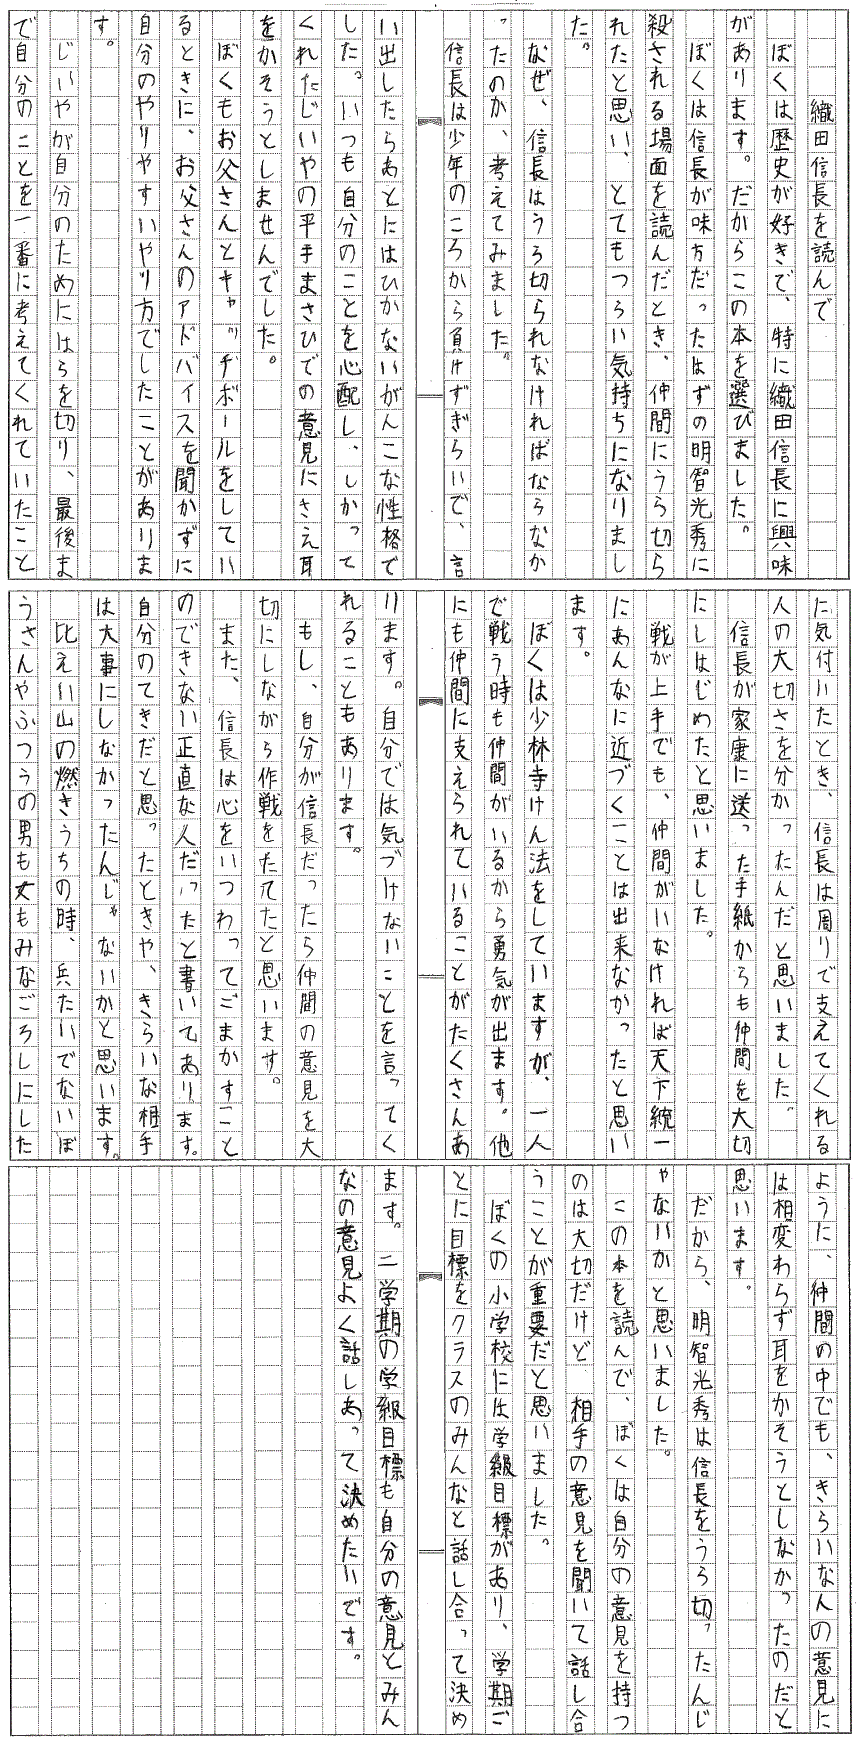 織田信長を読んで
ぼくは歴史が好きで、特に織田信長に興味
があります。だからこの本を選びました。
ぼくは信長が味方だったはずの明智光秀に
殺される場面を読んだとき、仲間にうら切ら
れたと思い、とてもつらい気持ちになりまし
た。
なぜ、信長はうら切られなければならなか
ったのか、考えてみました。
信長は少年のころから負けずぎらいで、言
い出したらあとにはひかないがんこな性格で
した。いつも自分のことを心配し、しかって
くれたじいやの平手まさひでの意見にさえ耳
をかそうとしませんでした。
ぼくもお父さんとキャッチボールをしてい
るときに、お父さんのアドバイスを聞かずに
自分のやりやすいやり方でしたことがありま
す。
じいやが自分のためにはらを切り、最後ま
で自分のことを一番に考えてくれていたこと
に気付いたとき、信長は周りで支えてくれる
人の大切さを分かったんだと思いました。
信長が家康に送った手紙からも仲間を大切
にしはじめたと思いました。
戦が上手でも、仲間がいなければ天下統一
にあんなに近づくことは出来なかったと思い
ます。
ぼくは少林寺けん法をしていますが、一人
で戦う時も仲間がいるから勇気が出ます。他
にも仲間に支えられていることがたくさんあ
ります。自分では気づけないことを言ってく
れることもあります。
もし、自分が信長だったら仲間の意見を大
切にしながら作戦をたてたと思います。
また、信長は心をいつわってごまかすこと
のできない正直な人だったと書いてあります。
自分のてきだと思ったときや、きらいな相手
は大事にしなかったんじゃないかと思います。
比えい山の燃きうちの時、兵たいでないぼ
うさんやふつうの男も女もみなごろしにした
ように、仲間の中でも、きらいな人の意見に
は相変わらず耳をかそうとしなかったのだと
思います。
だから、明智光秀は信長をうら切ったんじ
ゃないかと思いました。
この本を読んで、ぼくは自分の意見を持つ
のは大切だけど、相手の意見を聞いて話し合
うことが重要だと思いました。
ぼくの小学校には学級目標があり、学期ご
とに目標をクラスのみんなと話し合って決め
ます。二学期の学級目標も自分の意見とみん
なの意見よく話しあって決めたいです。